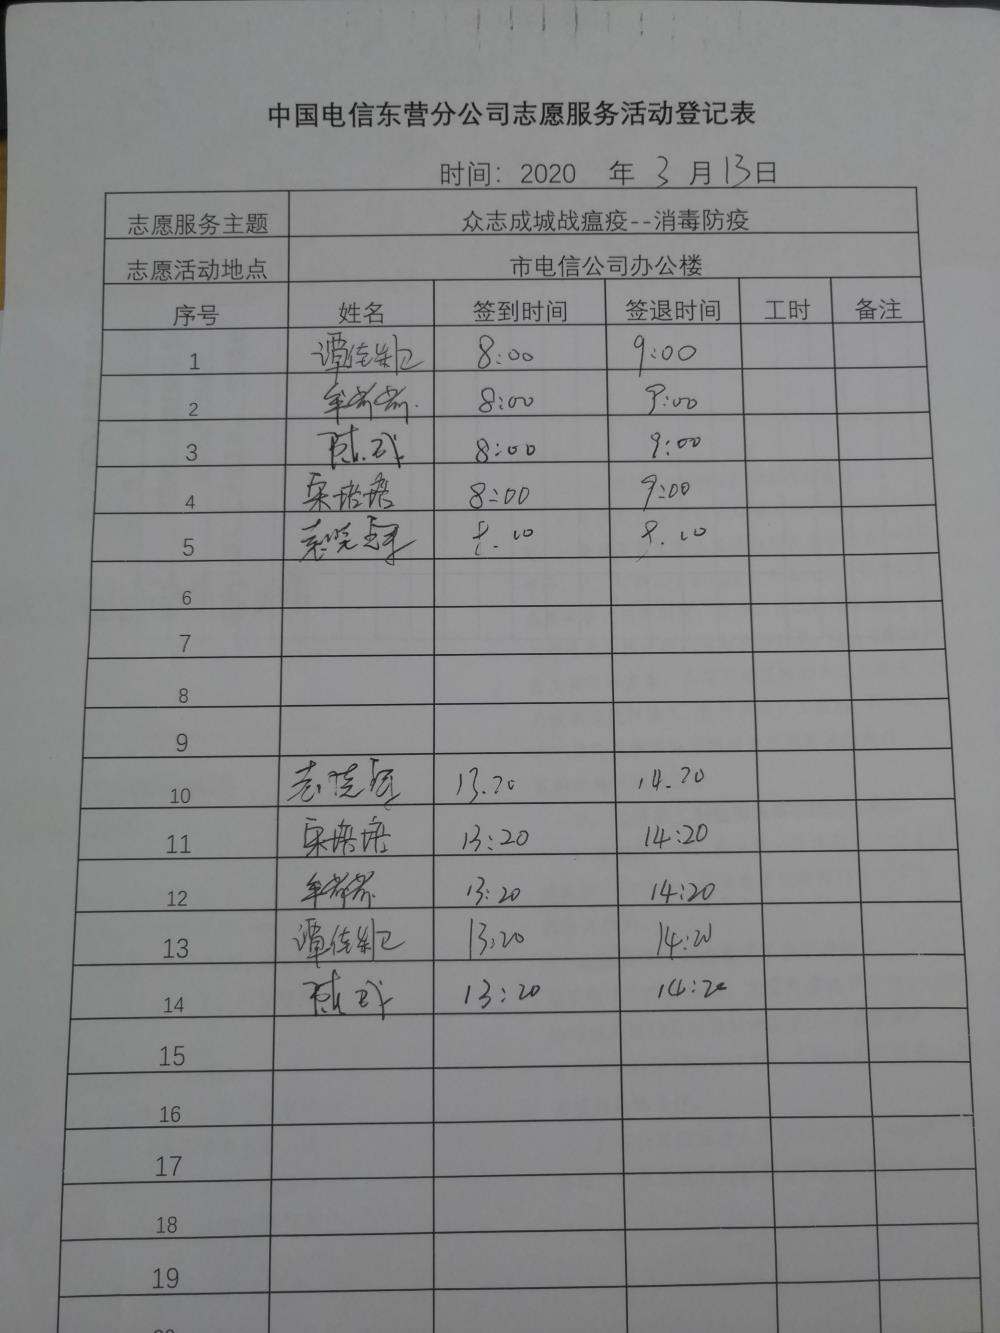 中国电信东营分公司志愿服务活动登记表
时间：2020 年 3 月 13 日
志愿服务主题 众志成城战瘟疫--消毒防疫
志愿活动地点 市电信公司办公楼
序号 姓名 签到时间 签退时间 工时 备注
1 谭佳 8:00 9:00
2 牟 8:00 9:00
3 陈 8:00 9:00
4 栾培培 8:00 9:00
5 8:00
6
7
8
9
10 13:20 14:20
11 栾培培 13:20 14:20
12 牟 13:20 14:20
13 谭佳 13:20 14:20
14 陈 13:20 14:20
15
16
17
18
19